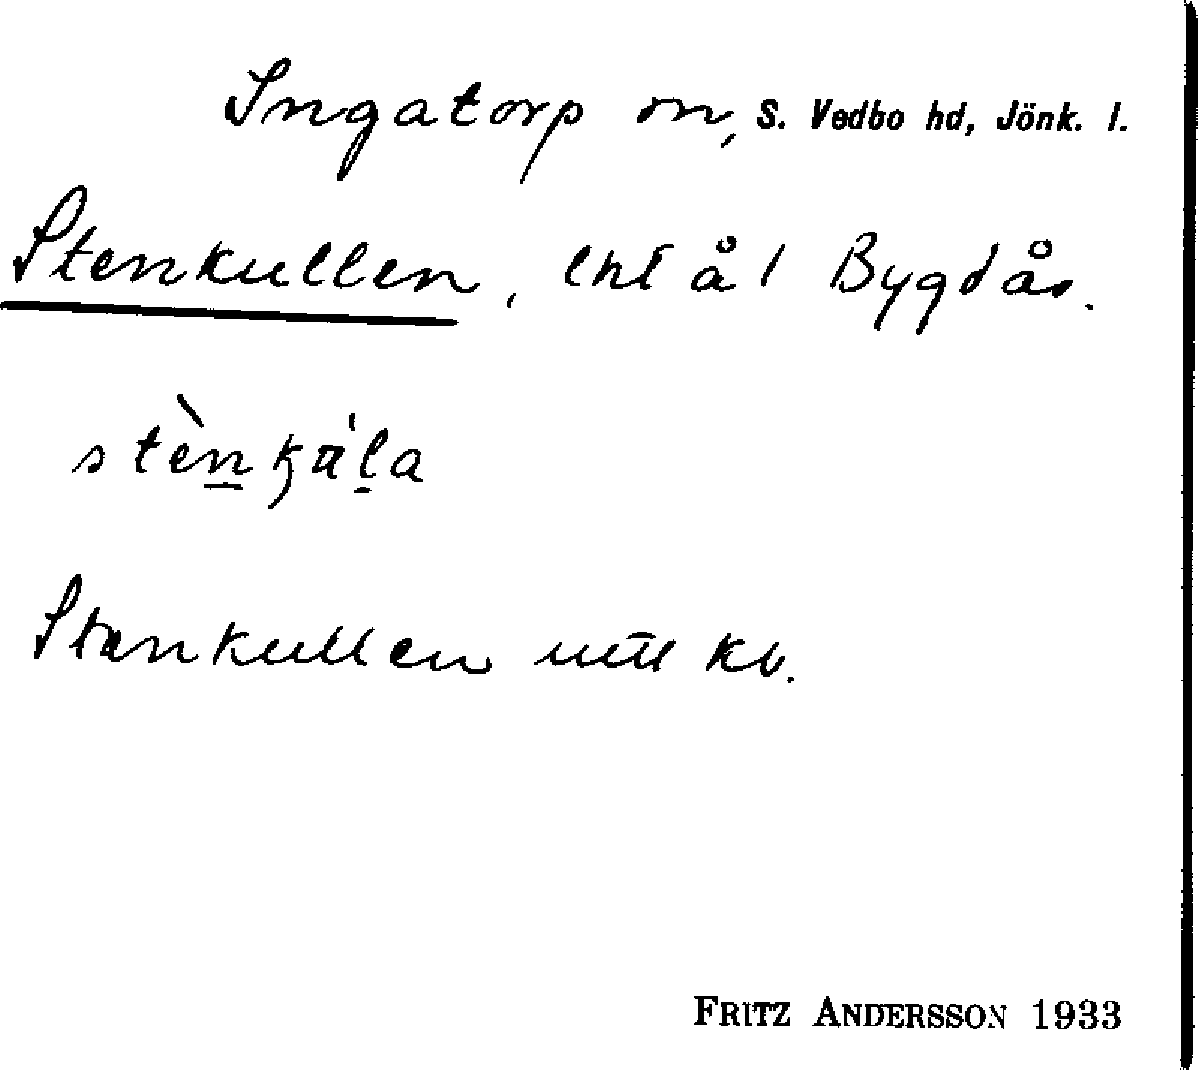 Ingatorp sn, S. Vedbo hd, Jönk. l.
Stenkullen, lht å Bygdås.
stènkála
Stenkullen utt kv.
Fritz Andersson 1933